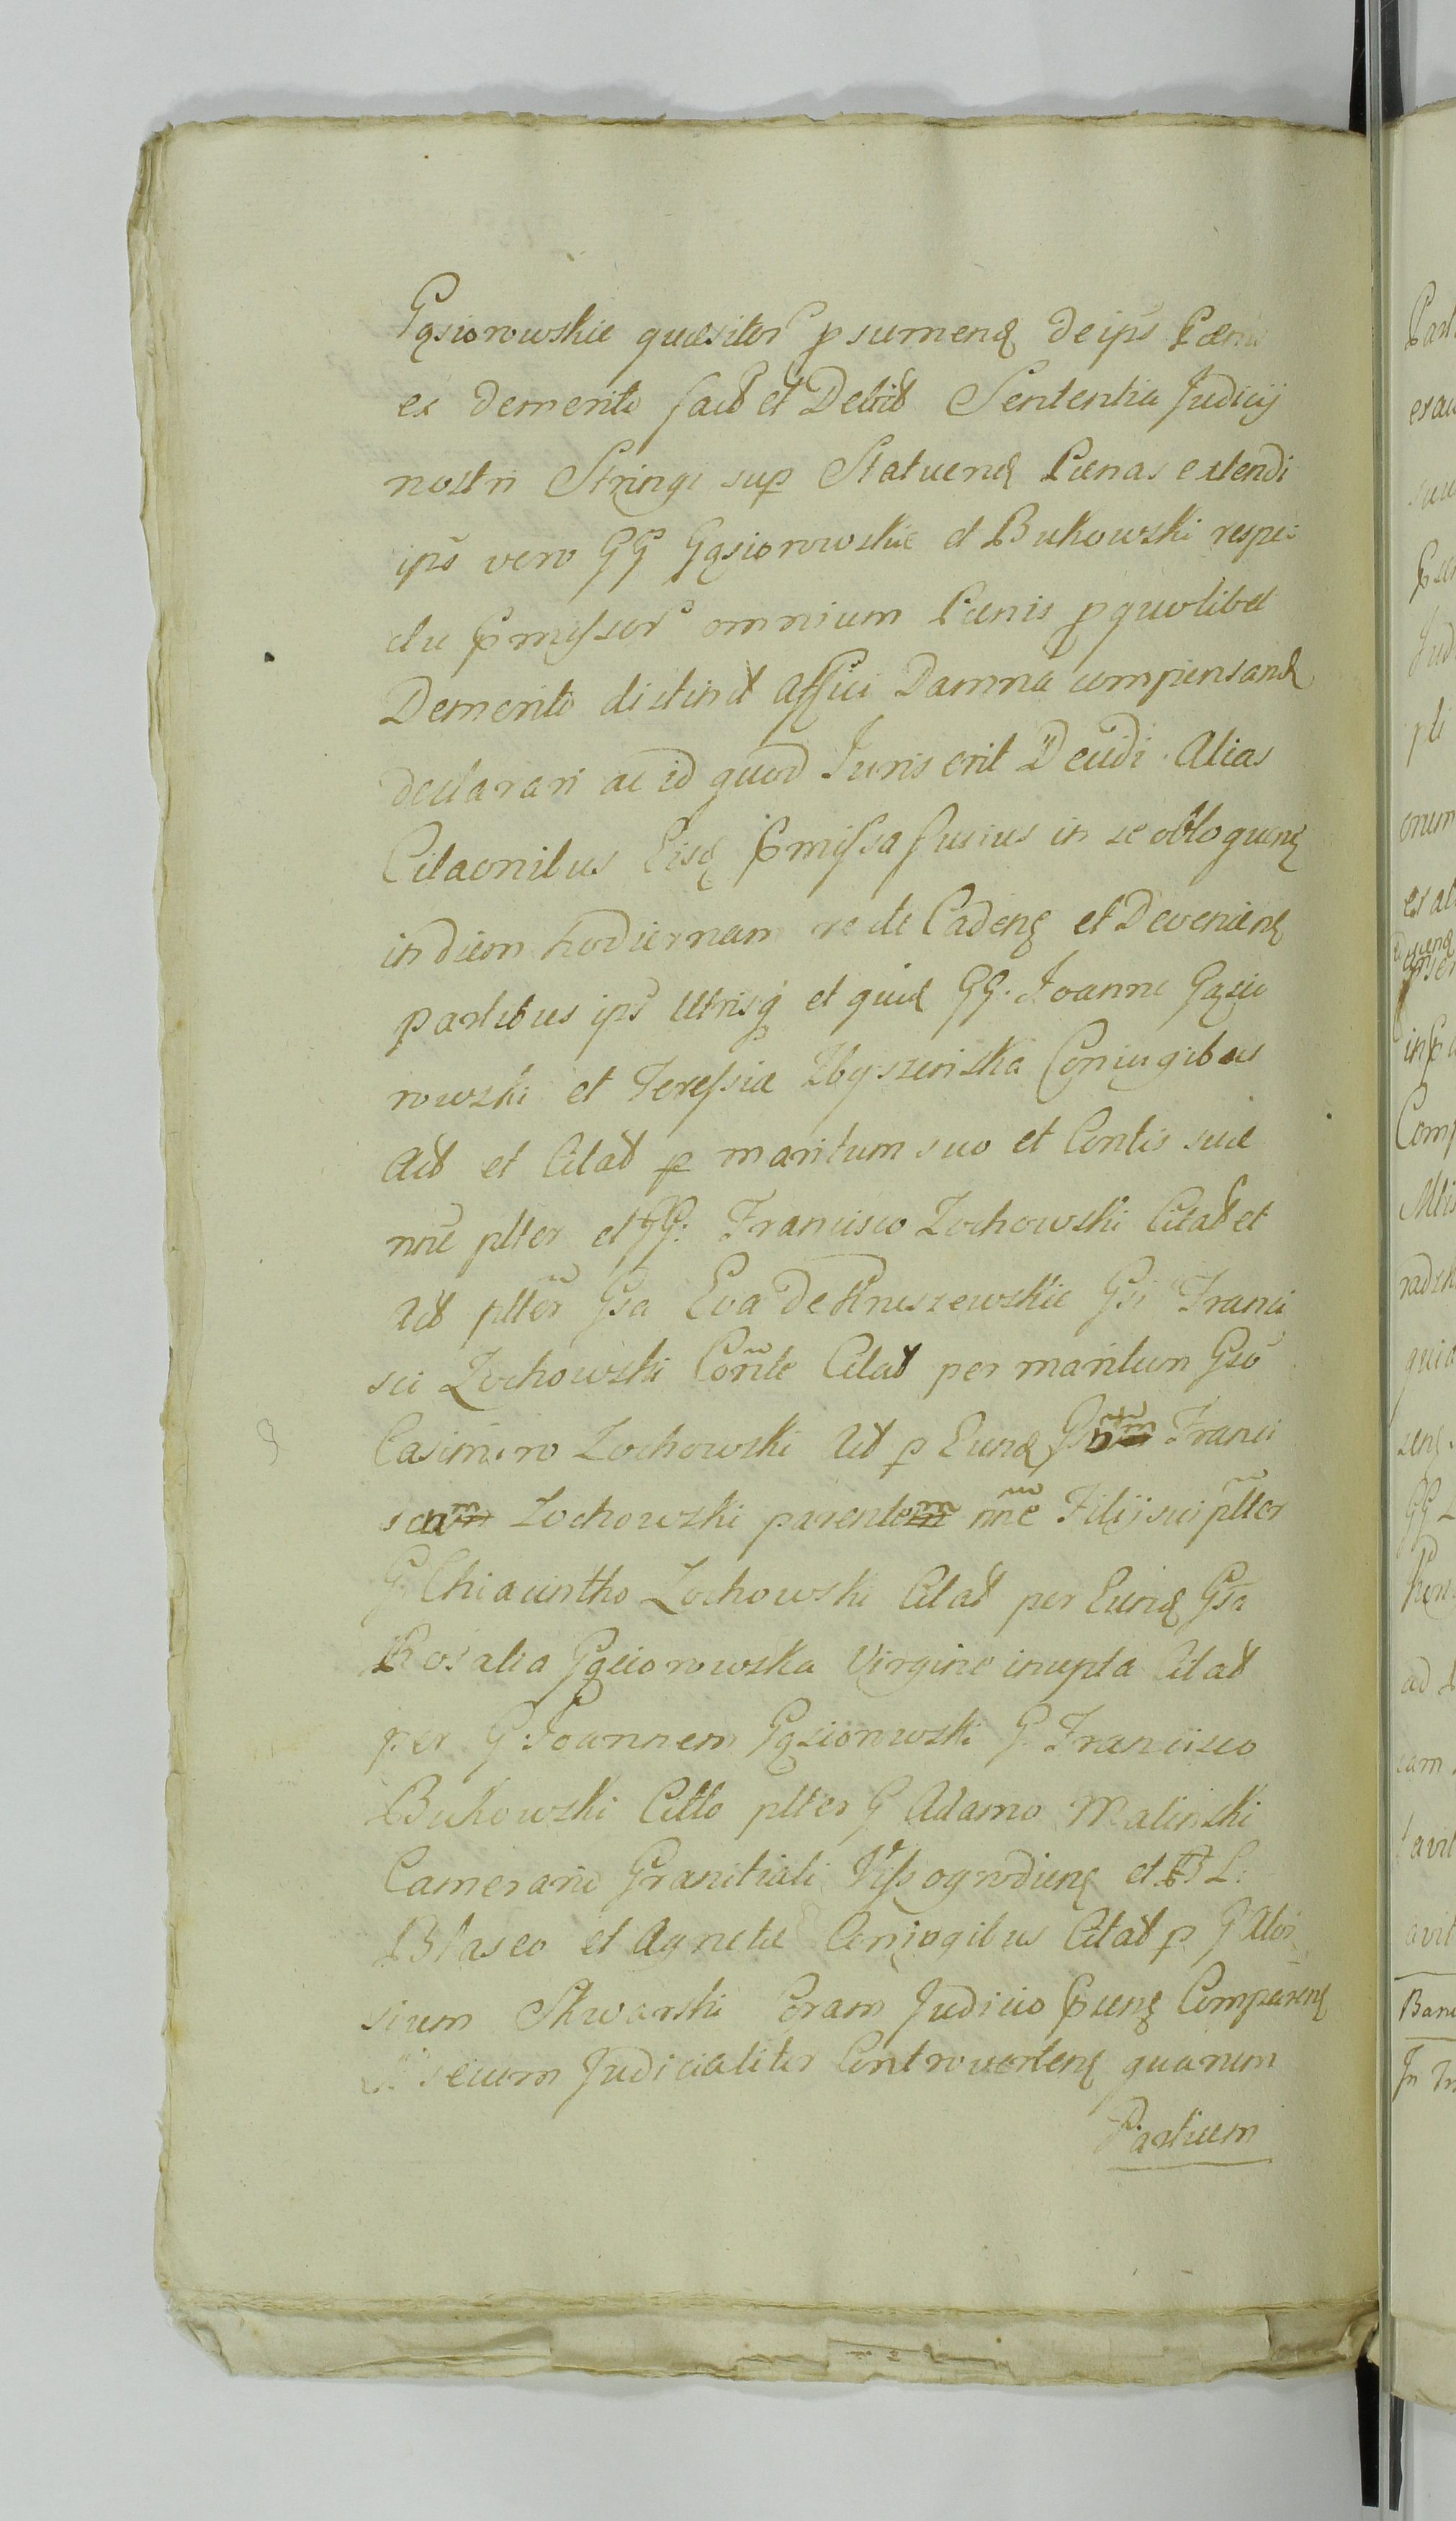 Gąsiorowskie quæsitor p sumenđ de ips Pænis
ex demerito facđ et Debitđ Sententia Judicij
nostri Stringi sup Statuenđ Pænas extendi
ips vero GG Gąsiorowskie et Bukowski respe:
ctu pmissor omnium Pænis p quolibet
Demerito distinct affici Damna compensanđ
declarari ac id quod Juris erit Decidi. Alias
Citaonibus Eisđ pmissa fusius in se obloquenđ
in diem hodiernam recte Cadenđ et Devenienđ
partibus ips Utrisq et quiđ GG. Joanne Gąsio
rowski et Teressia Zbyszenska Conjugibus
Act et Citat p maritum suo et Contis suæ
nne ptter et GG: Francisco Zochowski Citat et
Act ptter Gsa Eva de Kruszewskie Gsi Franci
sci Zochowski Conte Citat per maritum Gso
Casimiro Zochowski Act p Eunđ Franci
Zochowski parentem nne Filij sui ptter
G Chiacintho Zochowski Citat per Eunđ Gsa
Rosalia Gąsiorowska Virgine inupta Citat
per G: Joannem Gąsiorowski G. Francisco
Bukowski Citto ptter G Adamo Malinski
Camerario Granitiali Vissogrodienđ et L:
Blaseo et Agnete Conjugibus Citat p G Aloi
sium Skwarski Coram Judicio pnenđ Comparenđ
secum Judicialiter Controvertenđ quarum
Partium